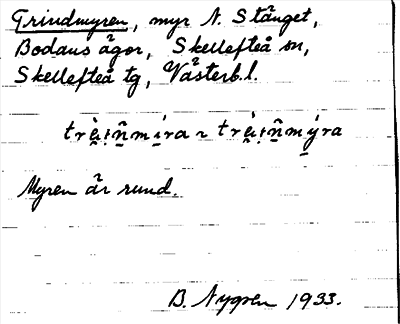 Grindmyren, myr N. Stänget,
Bodans ägor, Skellefteå sn,
Skellefteå tg, Västerb.l.
Myren är rund.
B. Nygren 1933.